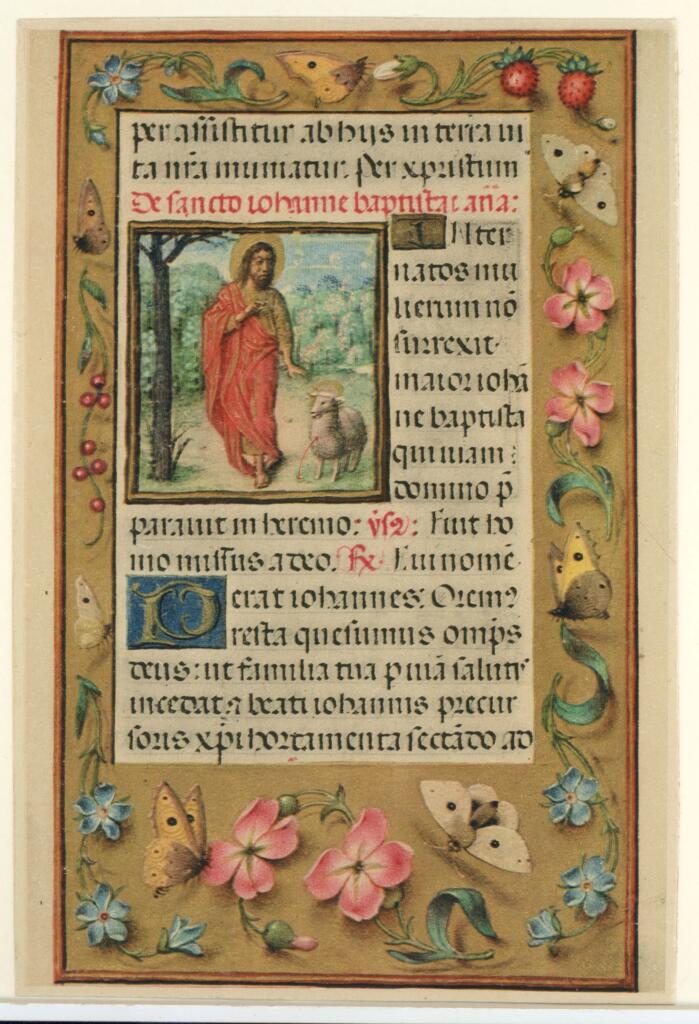 per assistitur ab hijs in terra ui
ta nr̄a muniatur. Per xpristum
De sancto iohanne baptista: an̄a:
Inter
natos mu
lierum nō
surrexit
maior iohā
ne baptista
qui uiam:
domino p̄
parauit in heremo: v̄s: Fuit ho
mo missus a deo. Rx. Cui nomē
erat iohannes: Orem?
Presta quesumus omp̄s
deus: ut familia tua p uiā salutis
incedat: & beati iohannis precur
soris xp̄i hortamenta sectādo ad